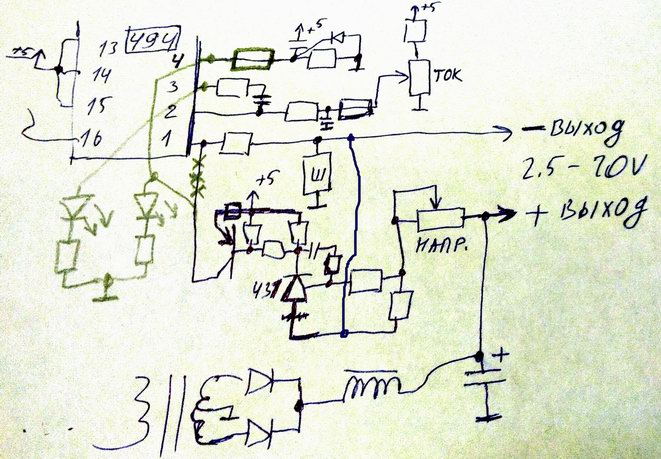 +5
13 494 4
14 3
15 2
16 1
+5
+5
ТОК
− ВЫХОД
2.5 - 20V
+ ВЫХОД
Ш
+5
НАПР.
431
+